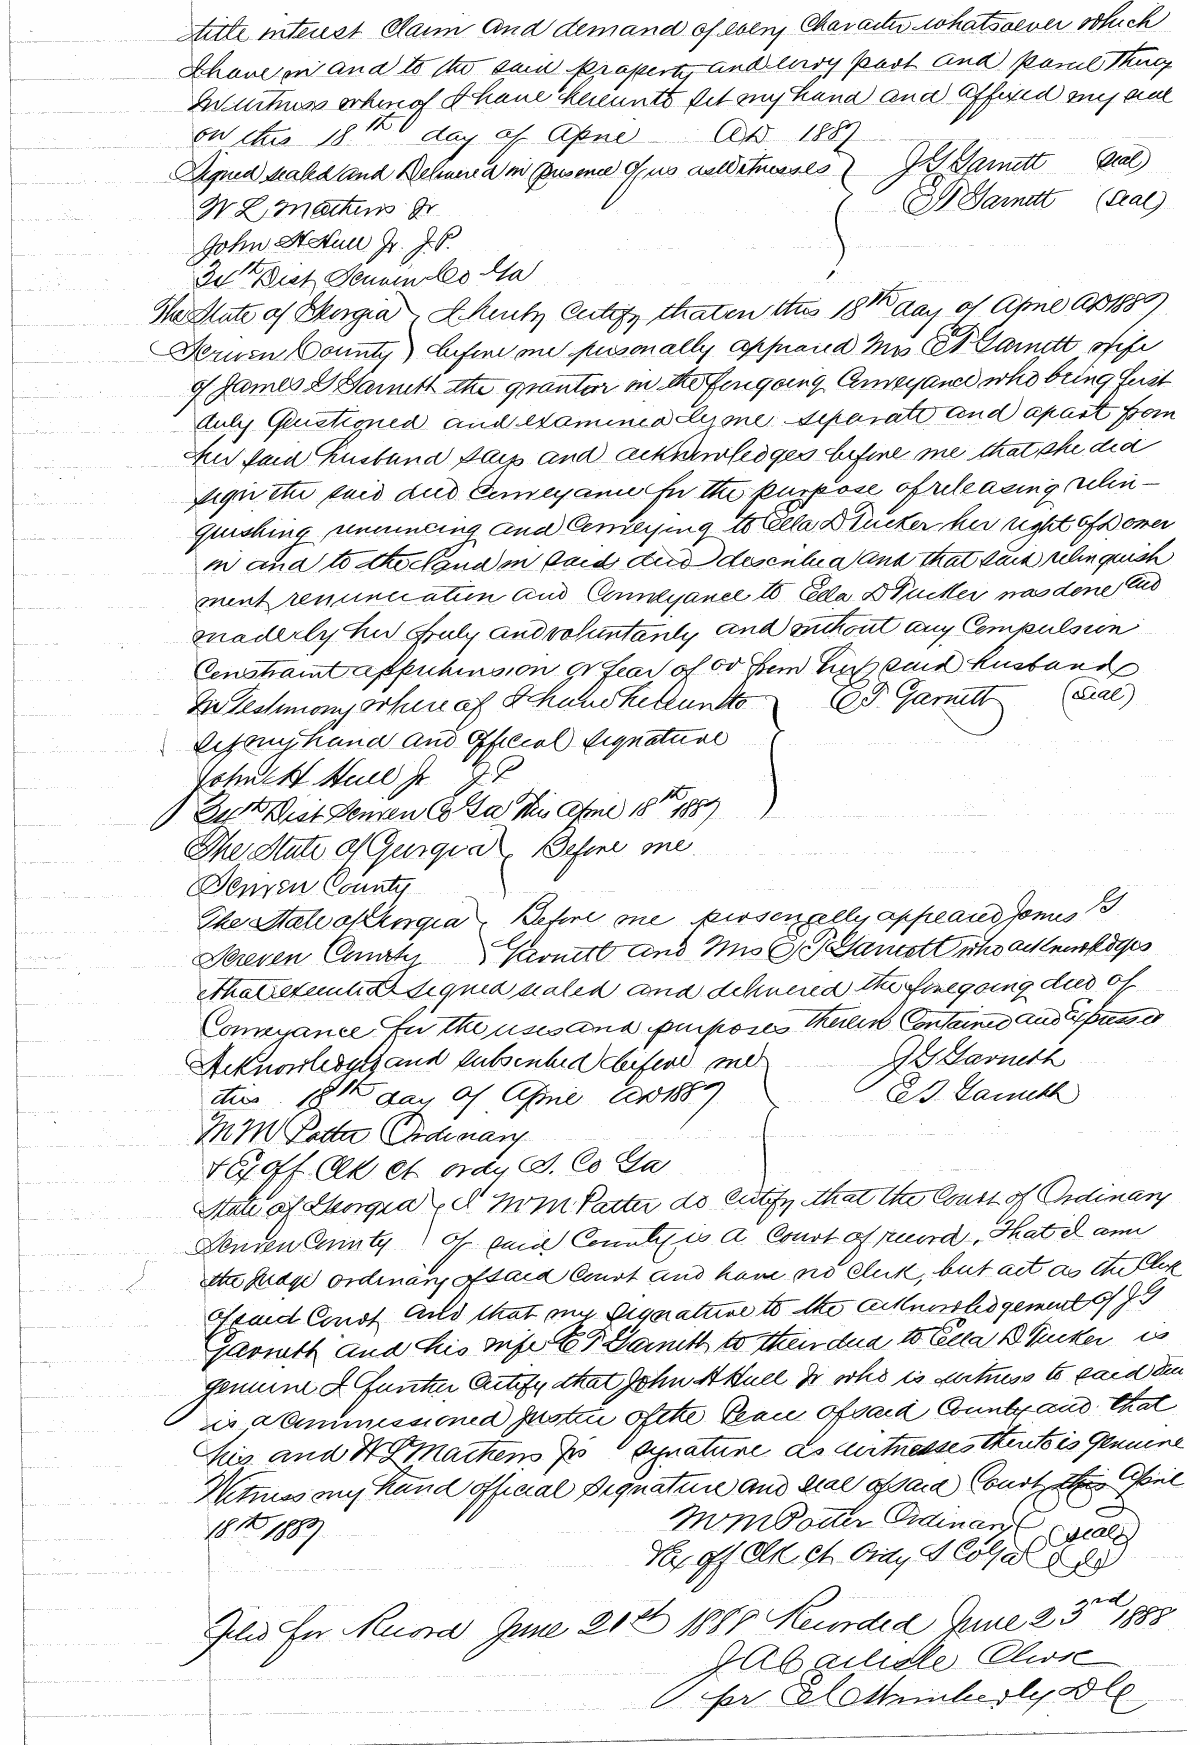 title interest Claim and demand of every Character whatsoever which
I have in and to the said property and every part and parcel thereof
In witness whereof I have hereunto set my hand and affixed my seal
on this 18th day of April AD 1889
Signed sealed and Delivered in presence of us as Witnesses } J G Garnett (Seal)
W L Mathews Jr E T Garnett (Seal)
John H Hull Jr. J.P.
34th Dist Scriven Co Ga
The State of Georgia } I hereby Certify that on this 18th day of April AD 1889
Scriven County } before me personally appeared Mrs E T Garnett wife
of James G Garnett the grantor in the foregoing Conveyance who being first
duly Questioned and examined by me separate and apart from
her said husband says and acknowledges before me that she did
sign the said deed Conveyance for the purpose of releasing relin-
quishing renouncing and Conveying to Ella D Tucker her right of Dower
in and to the Land in said deed described and that said relinquish
ment renunciation and Conveyance to Ella D Tucker was done and
made by her freely and voluntarily and without any Compulsion
Constraint apprehension or fear of or from her said husband
In Testimony where of I have hereunto } E T Garnett (Seal)
set my hand and Official Signature
John H Hull Jr J P
34th Dist Scriven Co Ga This April 18th 1889
The State of Georgia } Before me
Scriven County
The State of Georgia } Before me personally appeared James G
Screven County } Garnett and Mrs E T Garnett who acknowledges
that executed signed sealed and delivered the foregoing deed of
Conveyance for the uses and purposes therein Contained and Expressed
Acknowledged and subscribed before me } J G Garnett
this 18th day of April AD 1889 E T Garnett
M M Potter Ordinary
& Ex off Clk ct ordy S. Co Ga
State of Georgia } I M M Potter do Certify that the Court of Ordinary
Scriven County } of said County is a Court of record, That I am
the Judge ordinary of said Court and have no Clerk, but act as the Clerk
of said Court and that my signature to the acknowledgement of J G
Garnett and his wife E T Garnett to their deed to Ella D Tucker is
genuine I further Certify that John H Hull Jr who is witness to said deed
is a Commissioned Justice of the Peace of said County and that
his and W L Mathews Jrs signature as witnesses thereto is genuine
Witness my hand official Signature and seal of said Court this April
18th 1889
M M Potter Ordinary (Seal)
& Ex off Clk ct Ordy S Co Ga
Filed for Record June 20th 1888 Recorded June 23rd 1888
J A Carlisle Clerk
per E C Wimberly D C